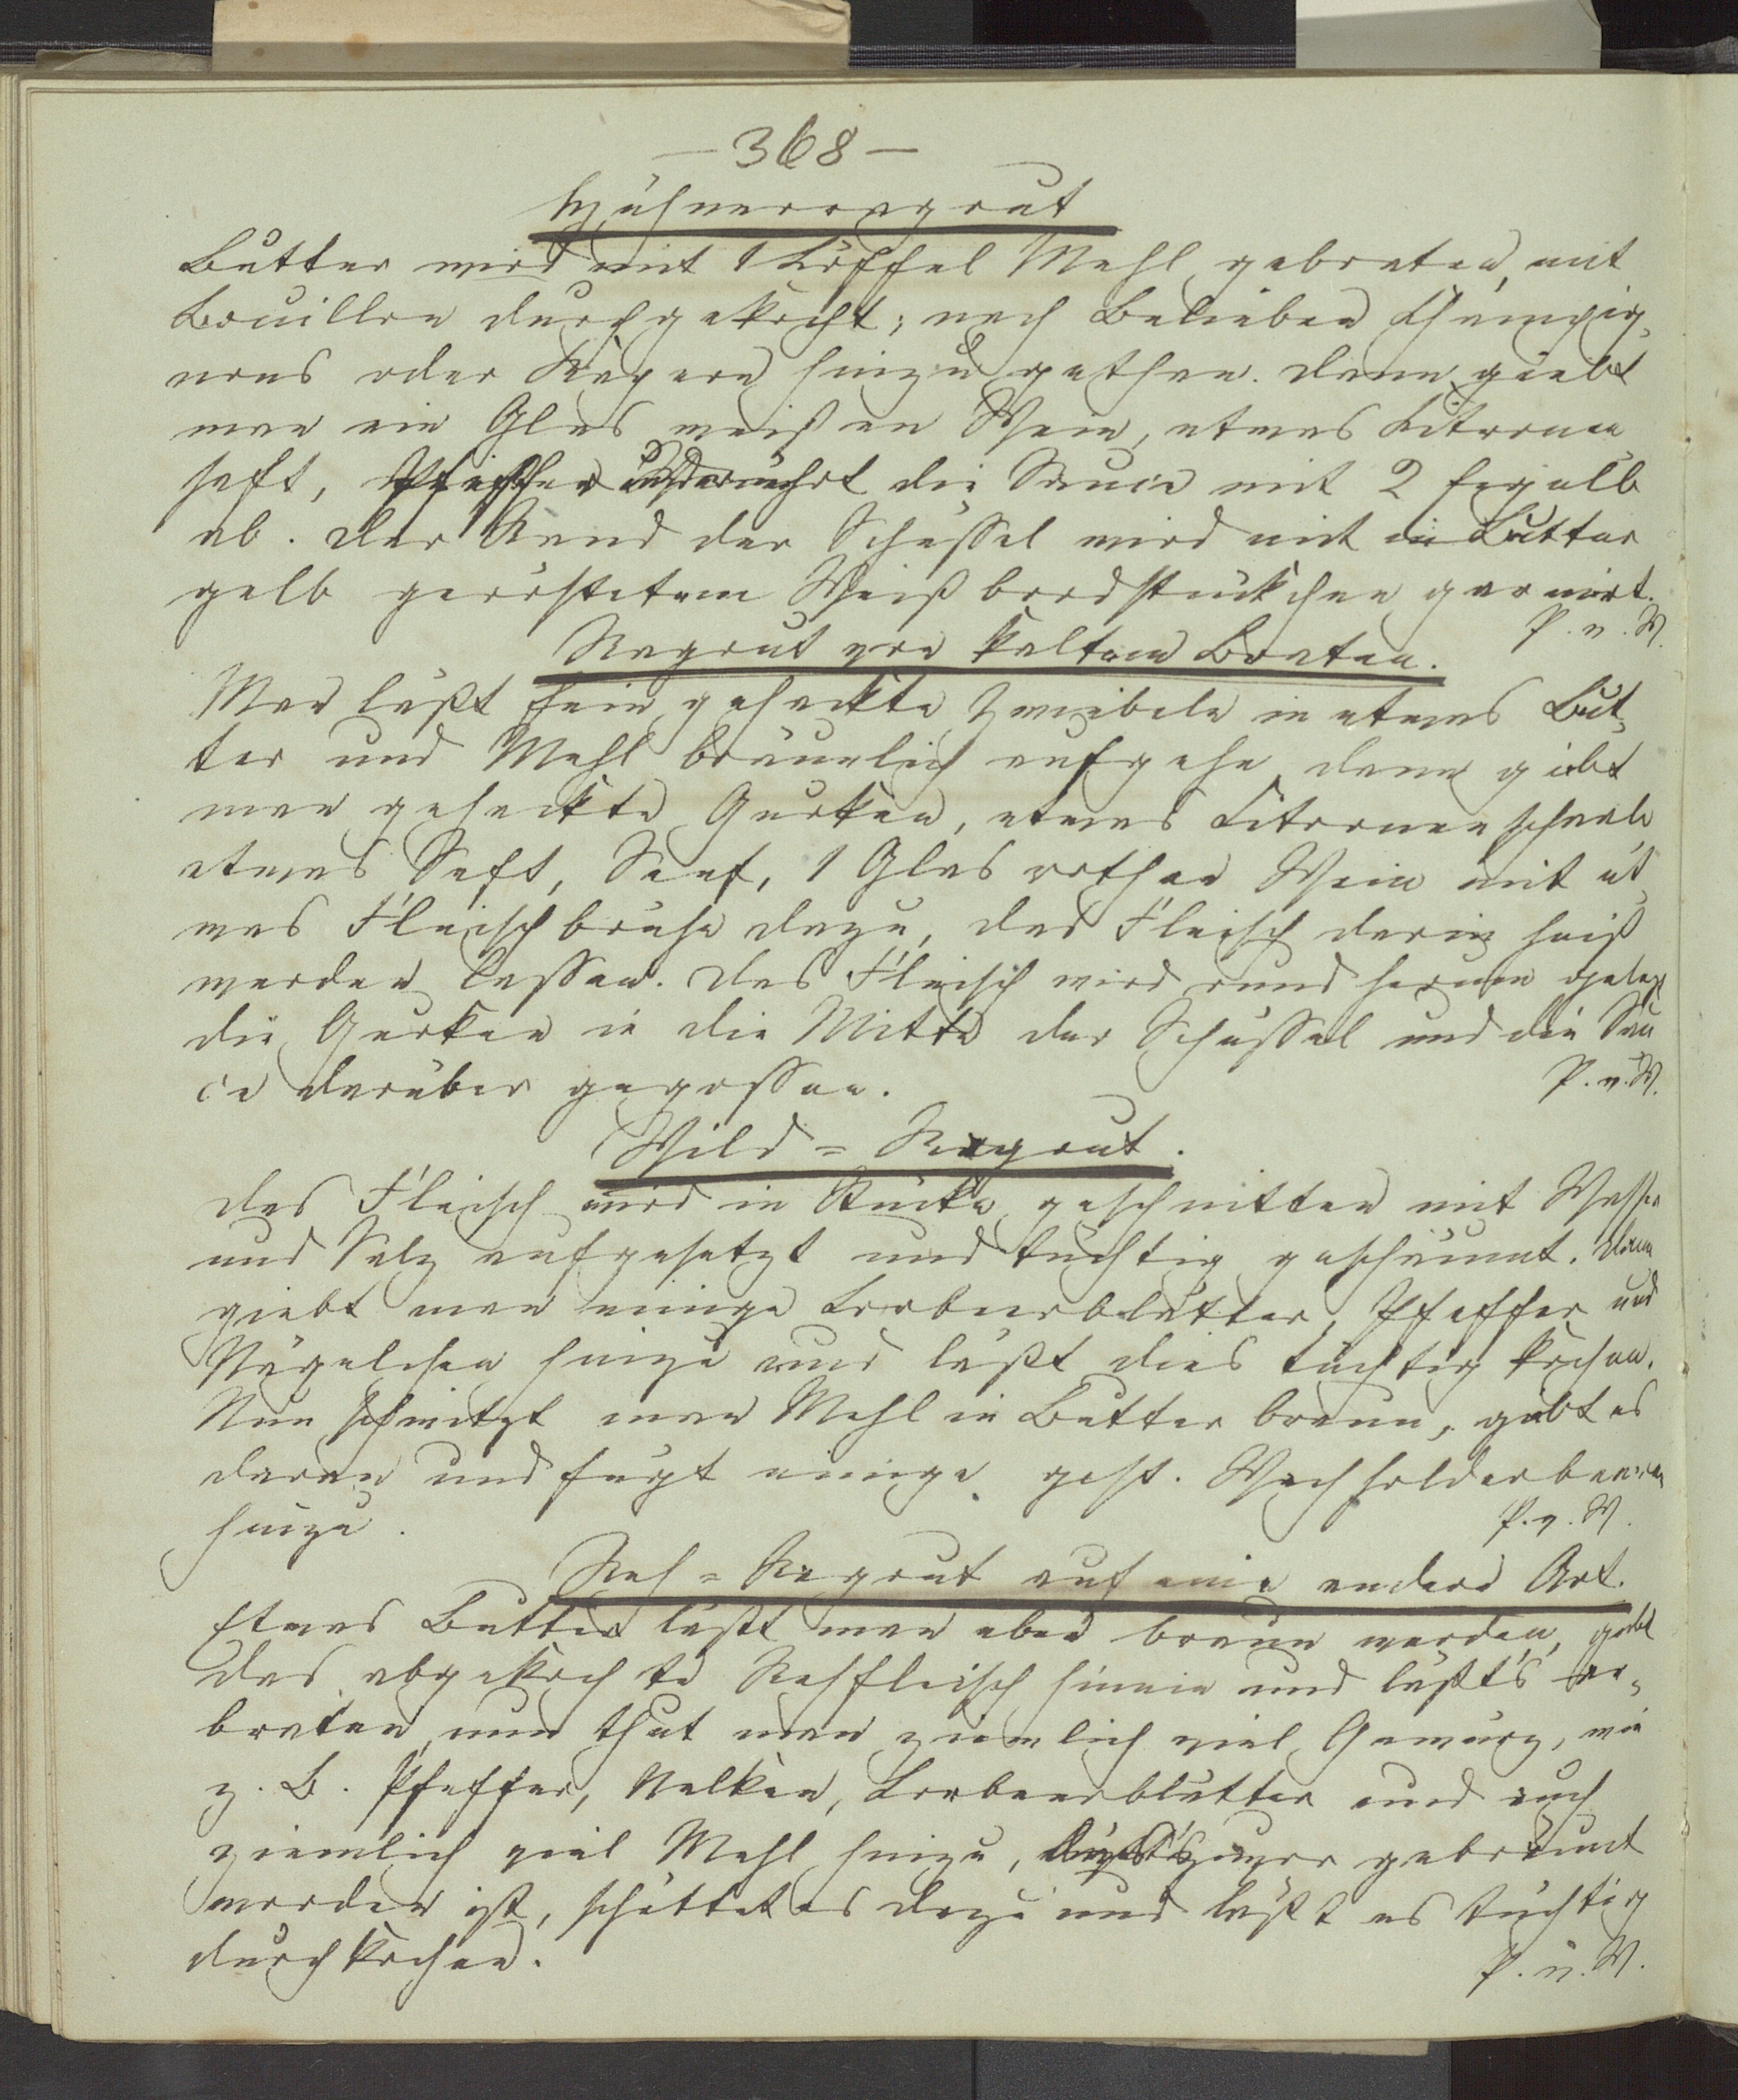 — 368 —
Hühnerragout
Butter wird mit 1 Löffel Mehl gebraten, mit
Bouillon durchgekocht; nach Belieben Champig-
nons oder Kapern hinzu gethan. Dann giebt
man ein Glas weißen Wein, etwas Citronen
saft, und rührt die Sauce mit 2 Eigelb
ab. Der Rand der Schüssel wird mit in Butter
gelb geröstetem Weißbrodstückchen garnirt.
P. v. W.
Ragout von kaltem Braten.
Man läßt fein gehackte Zwiebeln in etwas But-
ter und Mehl bräunlich aufgehn, dann giebt
man gehackte Gurken, etwas Citronenschaale
etwas Saft, Senf, 1 Glas rothen Wein mit et
was Fleischbrühe dazu, das Fleisch darin heiß
werden lassen. Das Fleisch wird rund herum gelegt
die Gurken in die Mitte der Schüssel und die Sau
ce darüber gegossen.
P. v. W.
Wild-Ragout.
Das Fleisch wird in Stücke geschnitten mit Wasser
und Salz aufgesetzt und tüchtig geschäumt. Dann
giebt man einige Lorbeerblätter, Pfeffer und
Nägelchen hinzu und läßt dies tüchtig kochen.
Nun schwitzt man Mehl in Butter braun, giebt es
daran und fügt einige gest. Wachholderbeeren
hinzu.
P. v. W.
Reh-Ragout auf eine andere Art.
Etwas Butter läßt man eben braun werden, giebt
das abgekochte Rehfleisch hinein und läßt's
braten, nun thut man ziemlich viel Gewürz, wie
z. B. Pfeffer, Nelken, Lorbeerblätter und auch
ziemlich viel Mehl hinzu, zuvor gebräunt
worden ist, schüttet es dazu und läßt es tüchtig
durchkochen.
P. v. W.